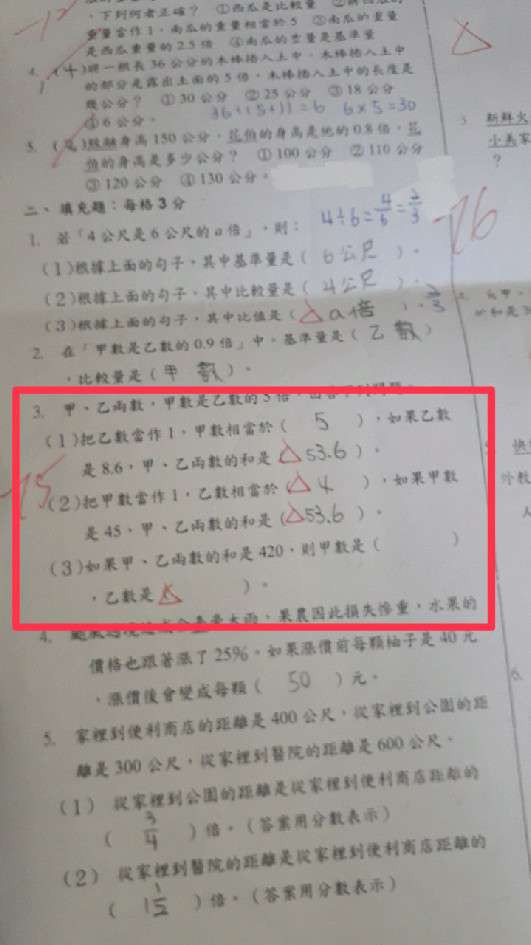 ，下列何者正確？ ①西瓜是比較量
重量當作1，南瓜的重量相當於5 ③南瓜的重量
是西瓜重量的2.5倍 ④南瓜的重量是基準量
4. ( 4 )將一根長36公分的木棒插入土中，木棒插入土中
的部分是露出土面的5倍，木棒插入土中的長度是
幾公分？ ①30公分 ②25公分 ③18公分
④6公分。 36÷(5+1)=6 6×5=30
5. ( )駿融身高150公分，花伯的身高是他的0.8倍，花
伯的身高是多少公分？ ①100公分 ②110公分
③120公分 ④130公分。
二、填充題：每格3分
4÷6=4/6=2/3
1. 若「4公尺是6公尺的a倍」，則：
(1)根據上面的句子，其中基準量是( 6公尺 )。
(2)根據上面的句子，其中比較量是( 4公尺 )。
(3)根據上面的句子，其中比值是( a倍 )。 2/3
2. 在「甲數是乙數的0.9倍」中，基準量是( 乙數 )
，比較量是( 甲數 )。
3. 甲、乙兩數，甲數是乙數的5倍，
(1)把乙數當作1，甲數相當於( 5 )，如果乙數
是8.6，甲、乙兩數的和是( 53.6 )。
-15
(2)把甲數當作1，乙數相當於( 4 )，如果甲數
是45、甲、乙兩數的和是( 53.6 )。
(3)如果甲、乙兩數的和是420，則甲數是( )
，乙數是( )。
4. 果農因此損失慘重，水果的
價格也跟著漲了25%。如果漲價前每顆柚子是40元
，漲價後會變成每顆( 50 )元。
5. 家裡到便利商店的距離是400公尺，從家裡到公園的距
離是300公尺，從家裡到醫院的距離是600公尺。
(1) 從家裡到公園的距離是從家裡到便利商店距離的
( 3/4 )倍。(答案用分數表示)
(2) 從家裡到醫院的距離是從家裡到便利商店距離的
( )倍。(答案用分數表示)
新鮮火
小美家
？
-26